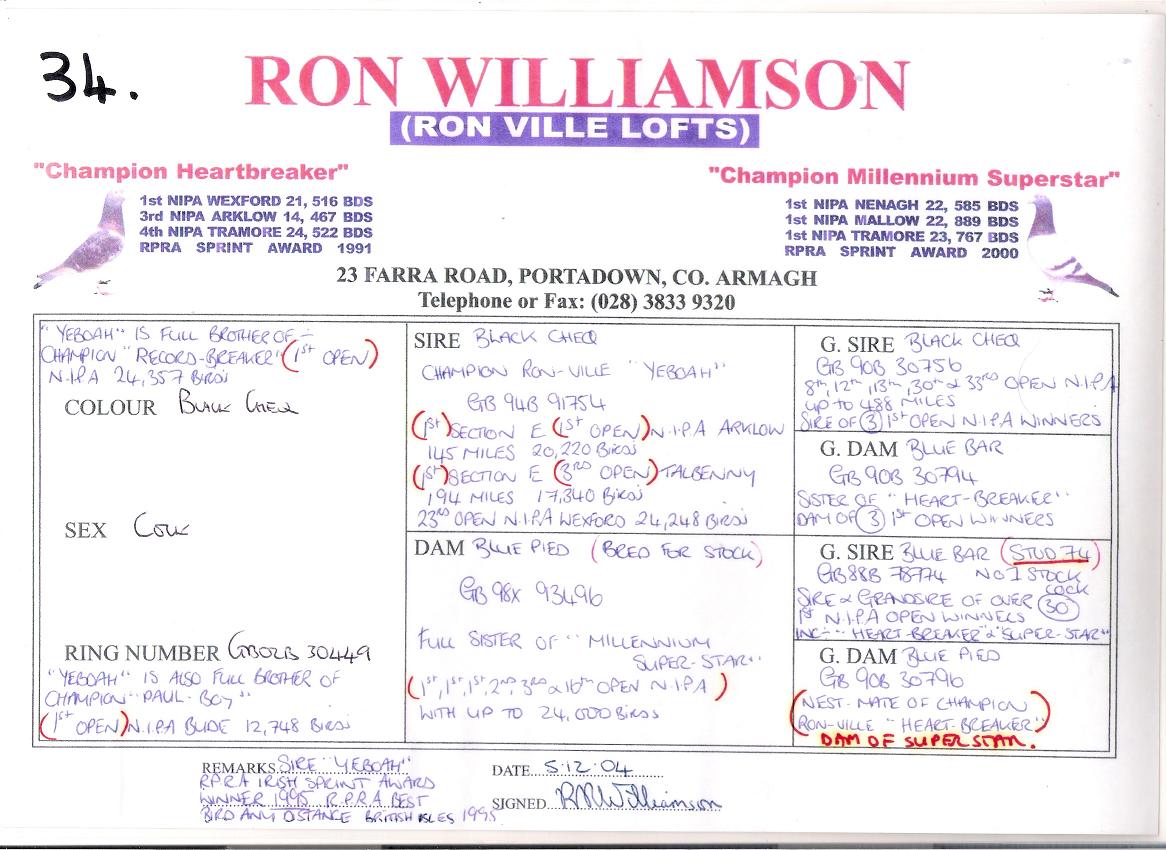 34.
RON WILLIAMSON
(RON VILLE LOFTS)
"Champion Heartbreaker"
1st NIPA WEXFORD 21, 516 BDS
3rd NIPA ARKLOW 14, 467 BDS
4th NIPA TRAMORE 24, 522 BDS
RPRA SPRINT AWARD 1991
"Champion Millennium Superstar"
1st NIPA NENAGH 22, 585 BDS
1st NIPA MALLOW 22, 889 BDS
1st NIPA TRAMORE 23, 767 BDS
RPRA SPRINT AWARD 2000
23 FARRA ROAD, PORTADOWN, CO. ARMAGH
Telephone or Fax: (028) 3833 9320
"YEBOAH" IS FULL BROTHER OF :-
CHAMPION "RECORD-BREAKER" (1st OPEN)
N.I.P.A 24,357 BIRDS
COLOUR BLACK CHEQ
SEX COCK
RING NUMBER GB02B 30449
"YEBOAH" IS ALSO FULL BROTHER OF
CHAMPION "PAUL-BOY"
(1st OPEN) N.I.P.A BUDE 12,748 BIRDS
SIRE BLACK CHEQ
CHAMPION RON-VILLE "YEBOAH"
GB 94B 91754
(1st) SECTION E (1st OPEN) N.I.P.A ARKLOW
145 MILES 20,220 BIRDS
(1st) SECTION E (3RD OPEN) TALBENNY
194 MILES 17,340 BIRDS
23RD OPEN N.I.P.A WEXFORD 24,248 BIRDS
DAM BLUE PIED (BRED FOR STOCK)
GB 98X 93496
FULL SISTER OF "MILLENNIUM
SUPER-STAR"
(1st, 1st, 1st, 2nd, 3rd & 16th OPEN N.I.P.A)
WITH UP TO 24,000 BIRDS
G. SIRE BLACK CHEQ
GB 90B 30756
8th, 12th, 13th, 30th & 33RD OPEN N.I.P.A
UP TO 488 MILES
SIRE OF (3) 1st OPEN N.I.P.A WINNERS
G. DAM BLUE BAR
GB 90B 30794
SISTER OF "HEART-BREAKER"
DAM OF (3) 1st OPEN WINNERS
G. SIRE BLUE BAR (STUD 74)
GB88B 78774 NO 1 STOCK
COCK
SIRE & GRANDSIRE OF OVER (30)
1st N.I.P.A OPEN WINNERS
INC:- "HEART-BREAKER" & "SUPER-STAR"
G. DAM BLUE PIED
GB 90B 30796
(NEST-MATE OF CHAMPION
RON-VILLE "HEART-BREAKER")
DAM OF SUPER STAR.
REMARKS SIRE "YEBOAH"
RPRA IRISH SPRINT AWARD
WINNER 1995 R.P.R.A BEST
BIRD ANY DISTANCE BRITISH ISLES 1995
DATE 5.12.04
SIGNED RWilliamson